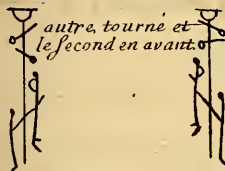 autre, tourné et
le second en avant.